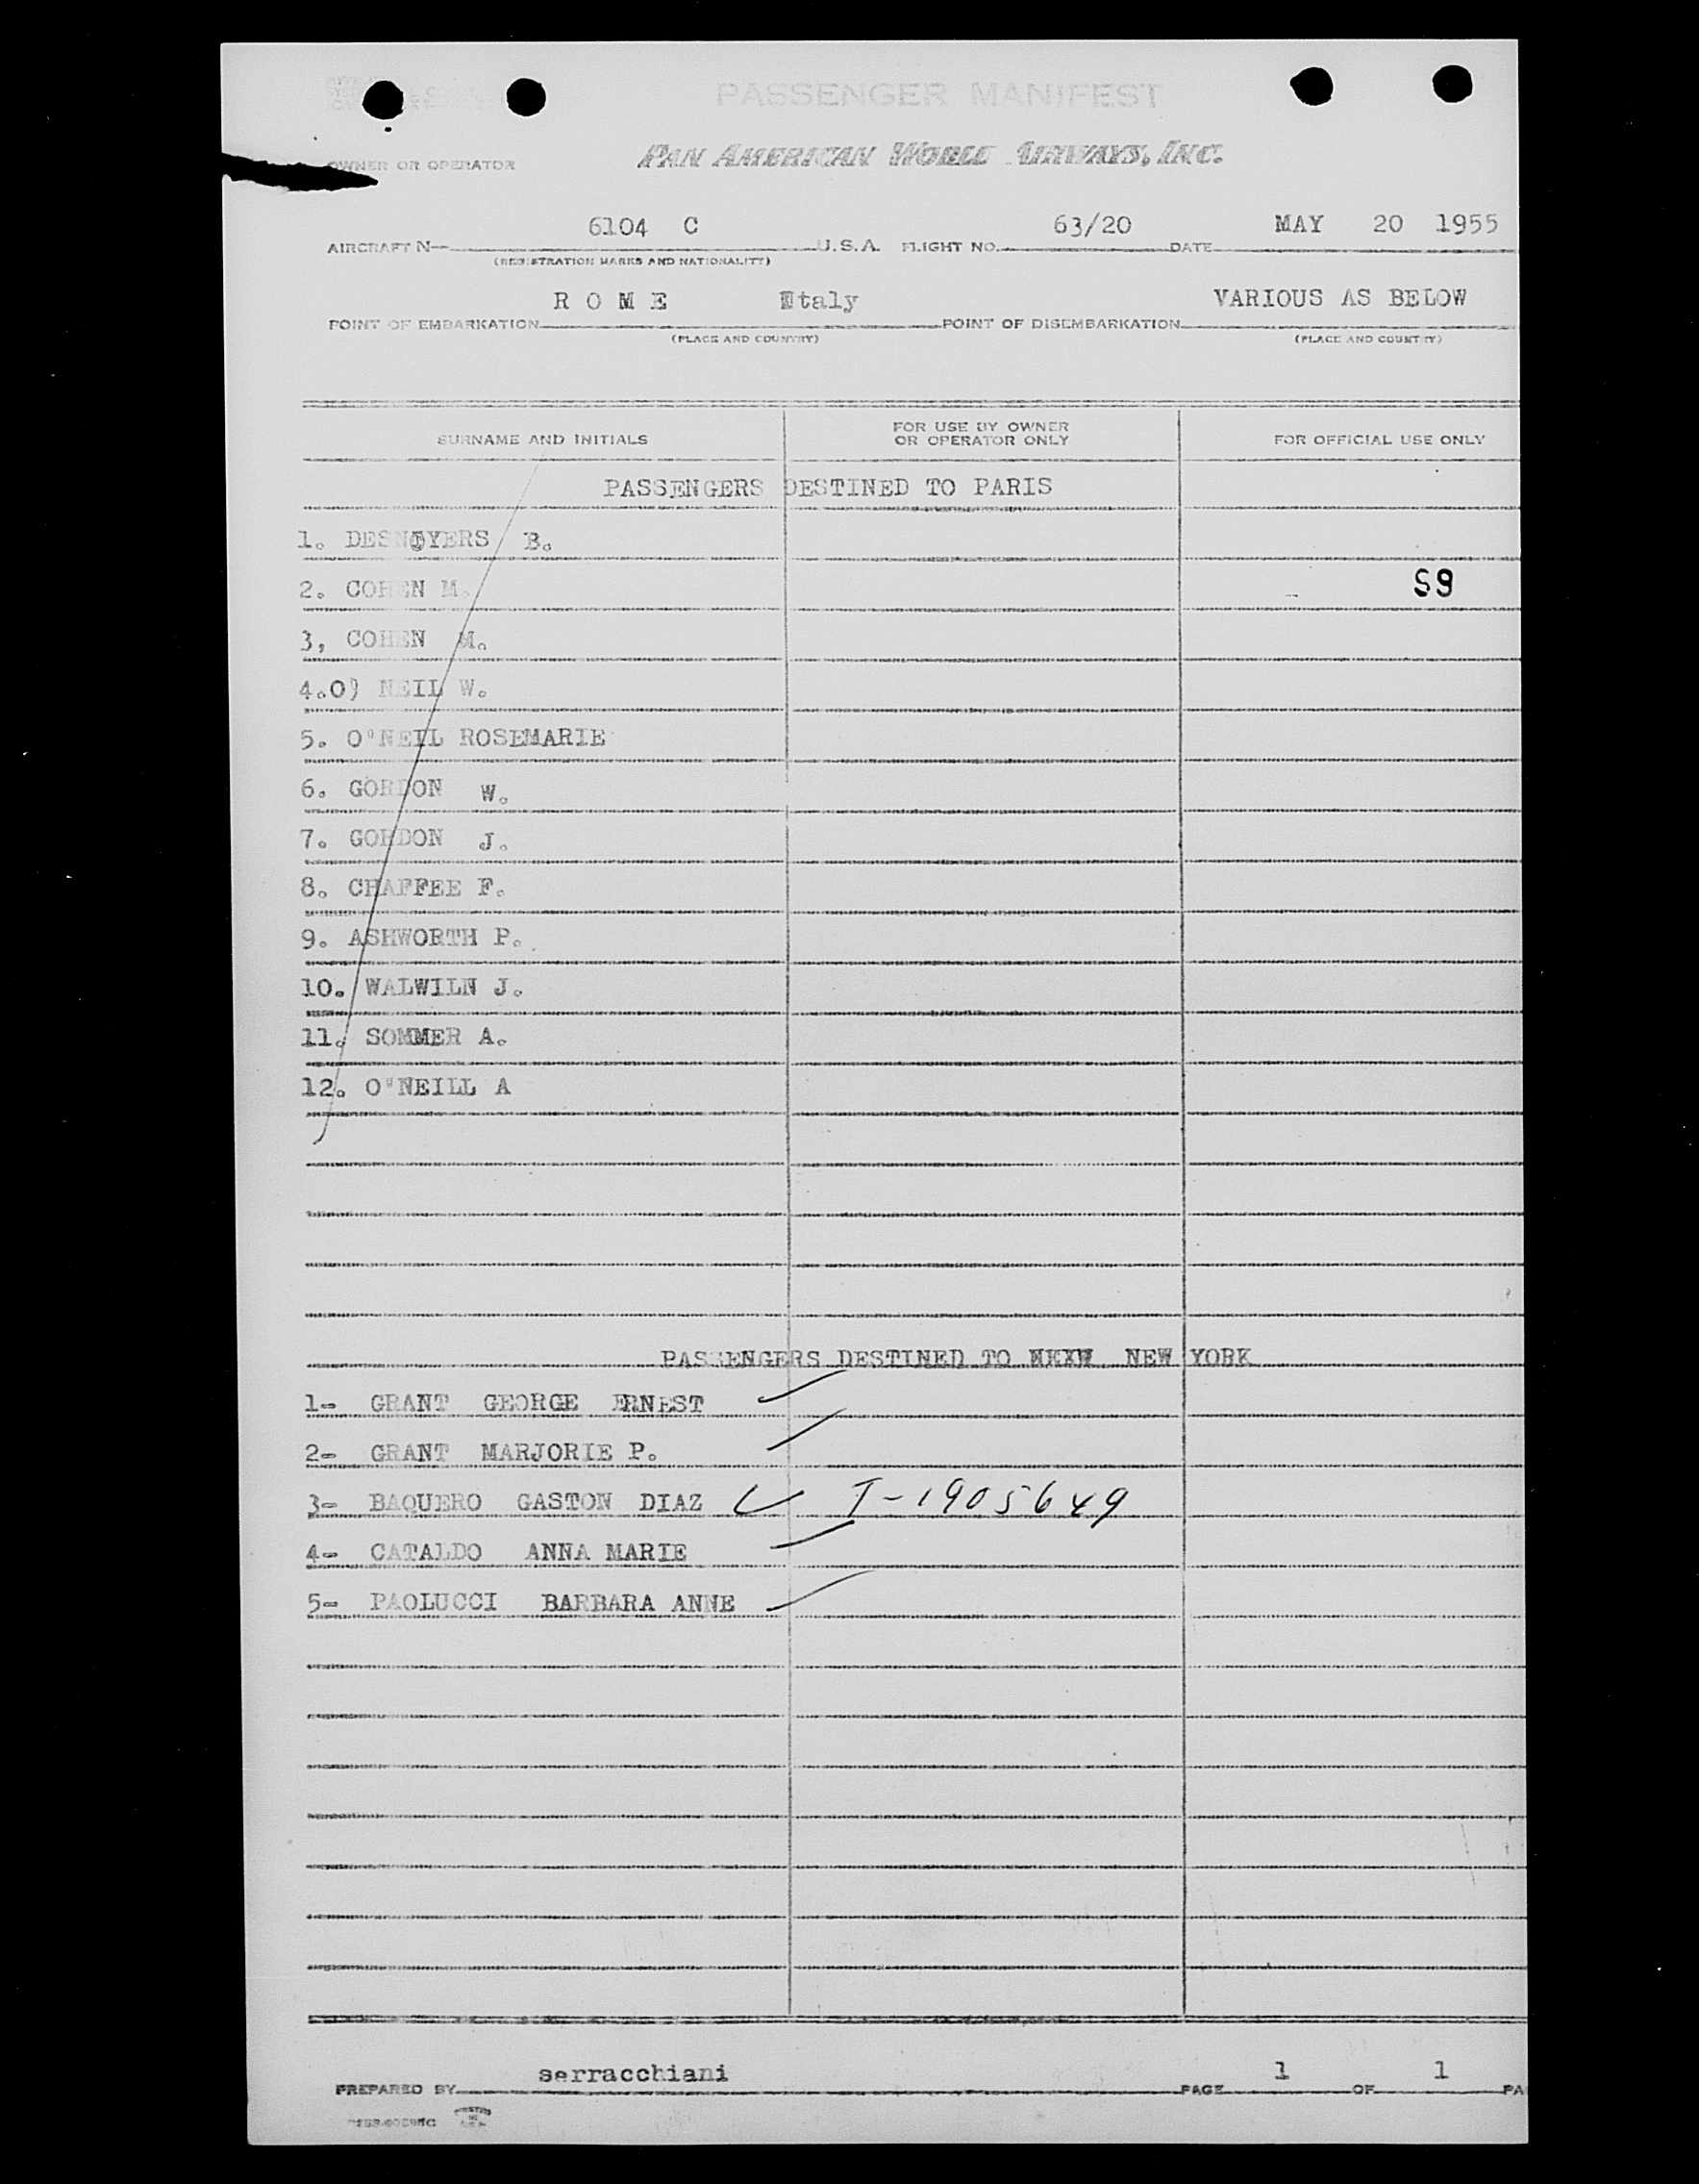 PASSENGER MANIFEST
OWNER OR OPERATOR PAN AMERICAN WORLD AIRWAYS, INC.
6104 C 63/20 MAY 20 1955
AIRCRAFT N— U.S.A. FLIGHT NO. DATE
(REGISTRATION MARKS AND NATIONALITY)
R O M E Italy VARIOUS AS BELOW
POINT OF EMBARKATION POINT OF DISEMBARKATION
(PLACE AND COUNTRY) (PLACE AND COUNTRY)
SURNAME AND INITIALS
FOR USE BY OWNER
OR OPERATOR ONLY
FOR OFFICIAL USE ONLY
PASSENGERS DESTINED TO PARIS
1. DESNOYERS B.
2. COHEN M. S9
3, COHEN M.
4.O) NEIL W.
5. O'NEIL ROSEMARIE
6. GORDON W.
7. GORDON J.
8. CHAFFEE F.
9. ASHWORTH P.
10. WALWILN J.
11. SOMMER A.
12. O'NEILL A
PASSENGERS DESTINED TO NEW YORK
1- GRANT GEORGE ERNEST
2- GRANT MARJORIE P.
3- BAQUERO GASTON DIAZ T-1905649
4- CATALDO ANNA MARIE
5- PAOLUCCI BARBARA ANNE
serracchiani 1 1
PREPARED BY PAGE OF PA